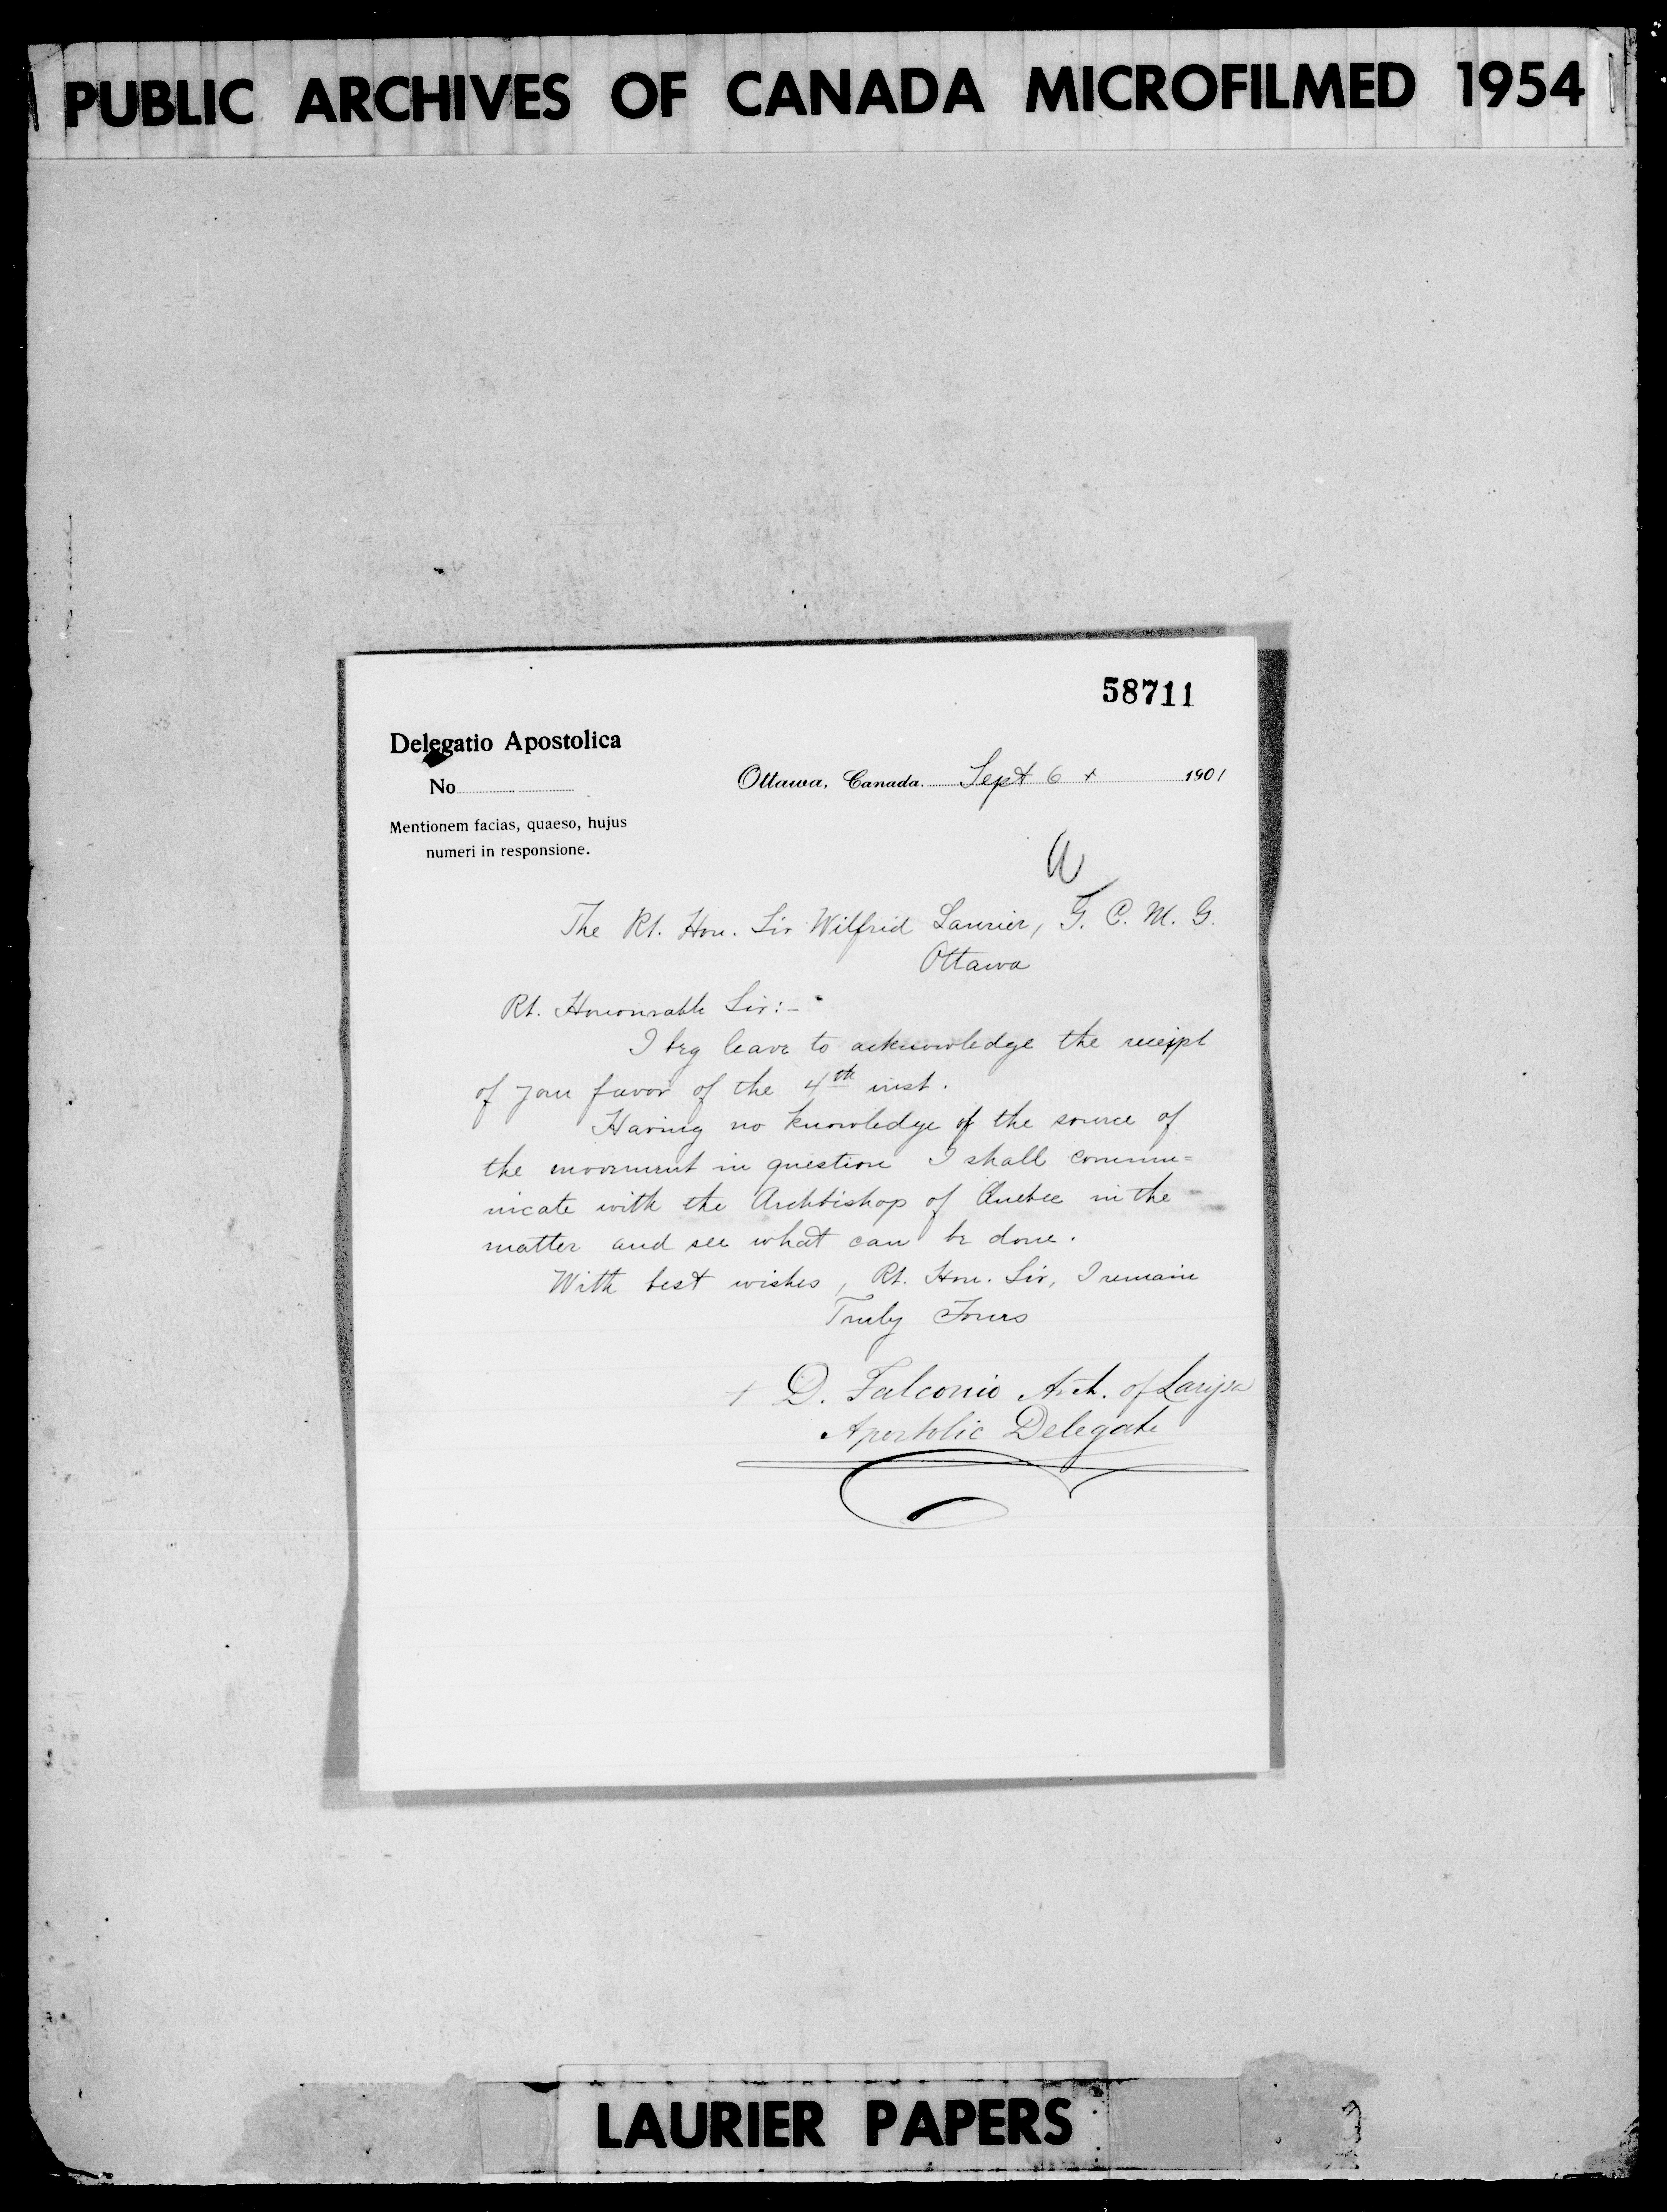 PUBLIC ARCHIVES OF CANADA MICROFILMED 1954
58711
Delegatio Apostolica
No
Ottawa, Canada. Sept 6 + 1901
Mentionem facias, quaeso, hujus
numeri in responsione.
The Rt. Hon. Sir Wilfrid Laurier, G. C. M. G.
Ottawa
Rt. Honourable Sir:-
I beg leave to acknowledge the receipt
of your favor of the 4th inst.
Having no knowledge of the source of
the movement in question I shall commu=
nicate with the Archbishop of Quebec in the
matter and see what can be done.
With best wishes, Rt. Hon. Sir, I remain
Truly Yours
+ D. Falconio Arch. of Larissa
Apostolic Delegate
LAURIER PAPERS